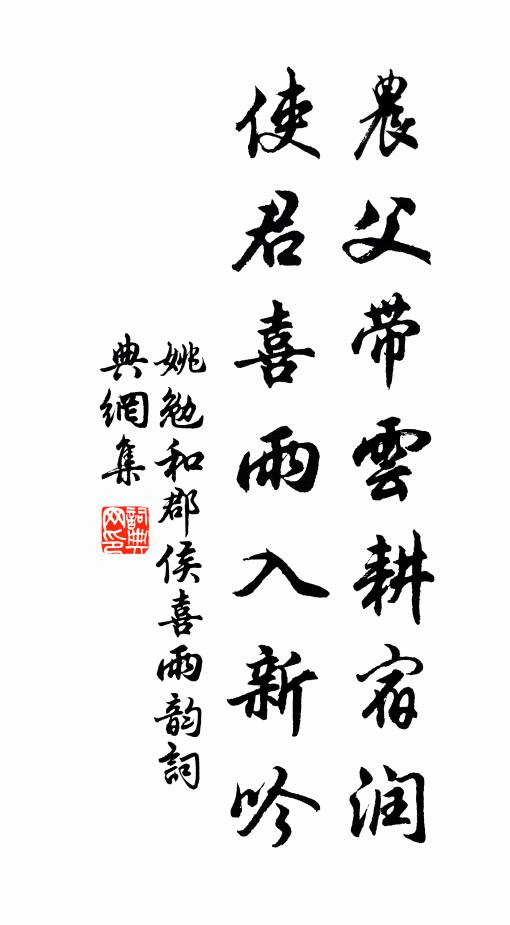 農父帶雲耕宿润
使君喜雨入新吟
姚勉和郡侯喜雨韵詞
典網集
詞典网印